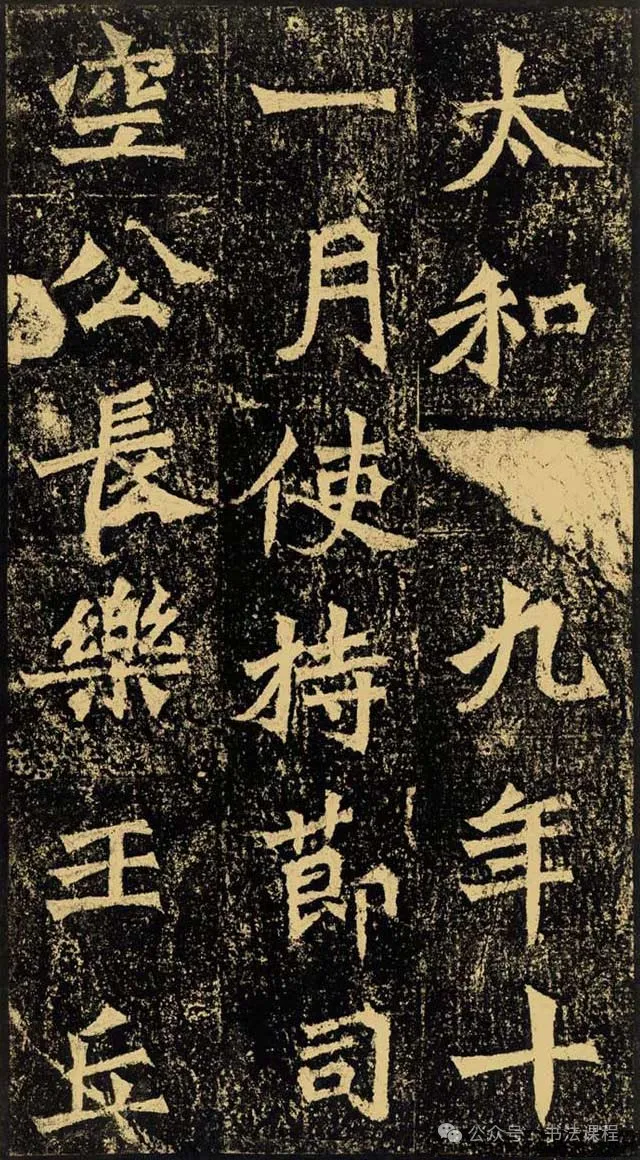 太和九年十
一月使持節司
空公長樂王丘
公众号·书法课程